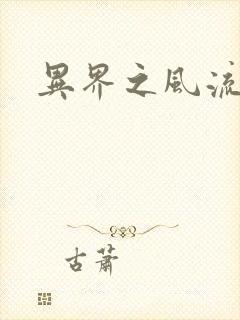 異界之風流
古蕭